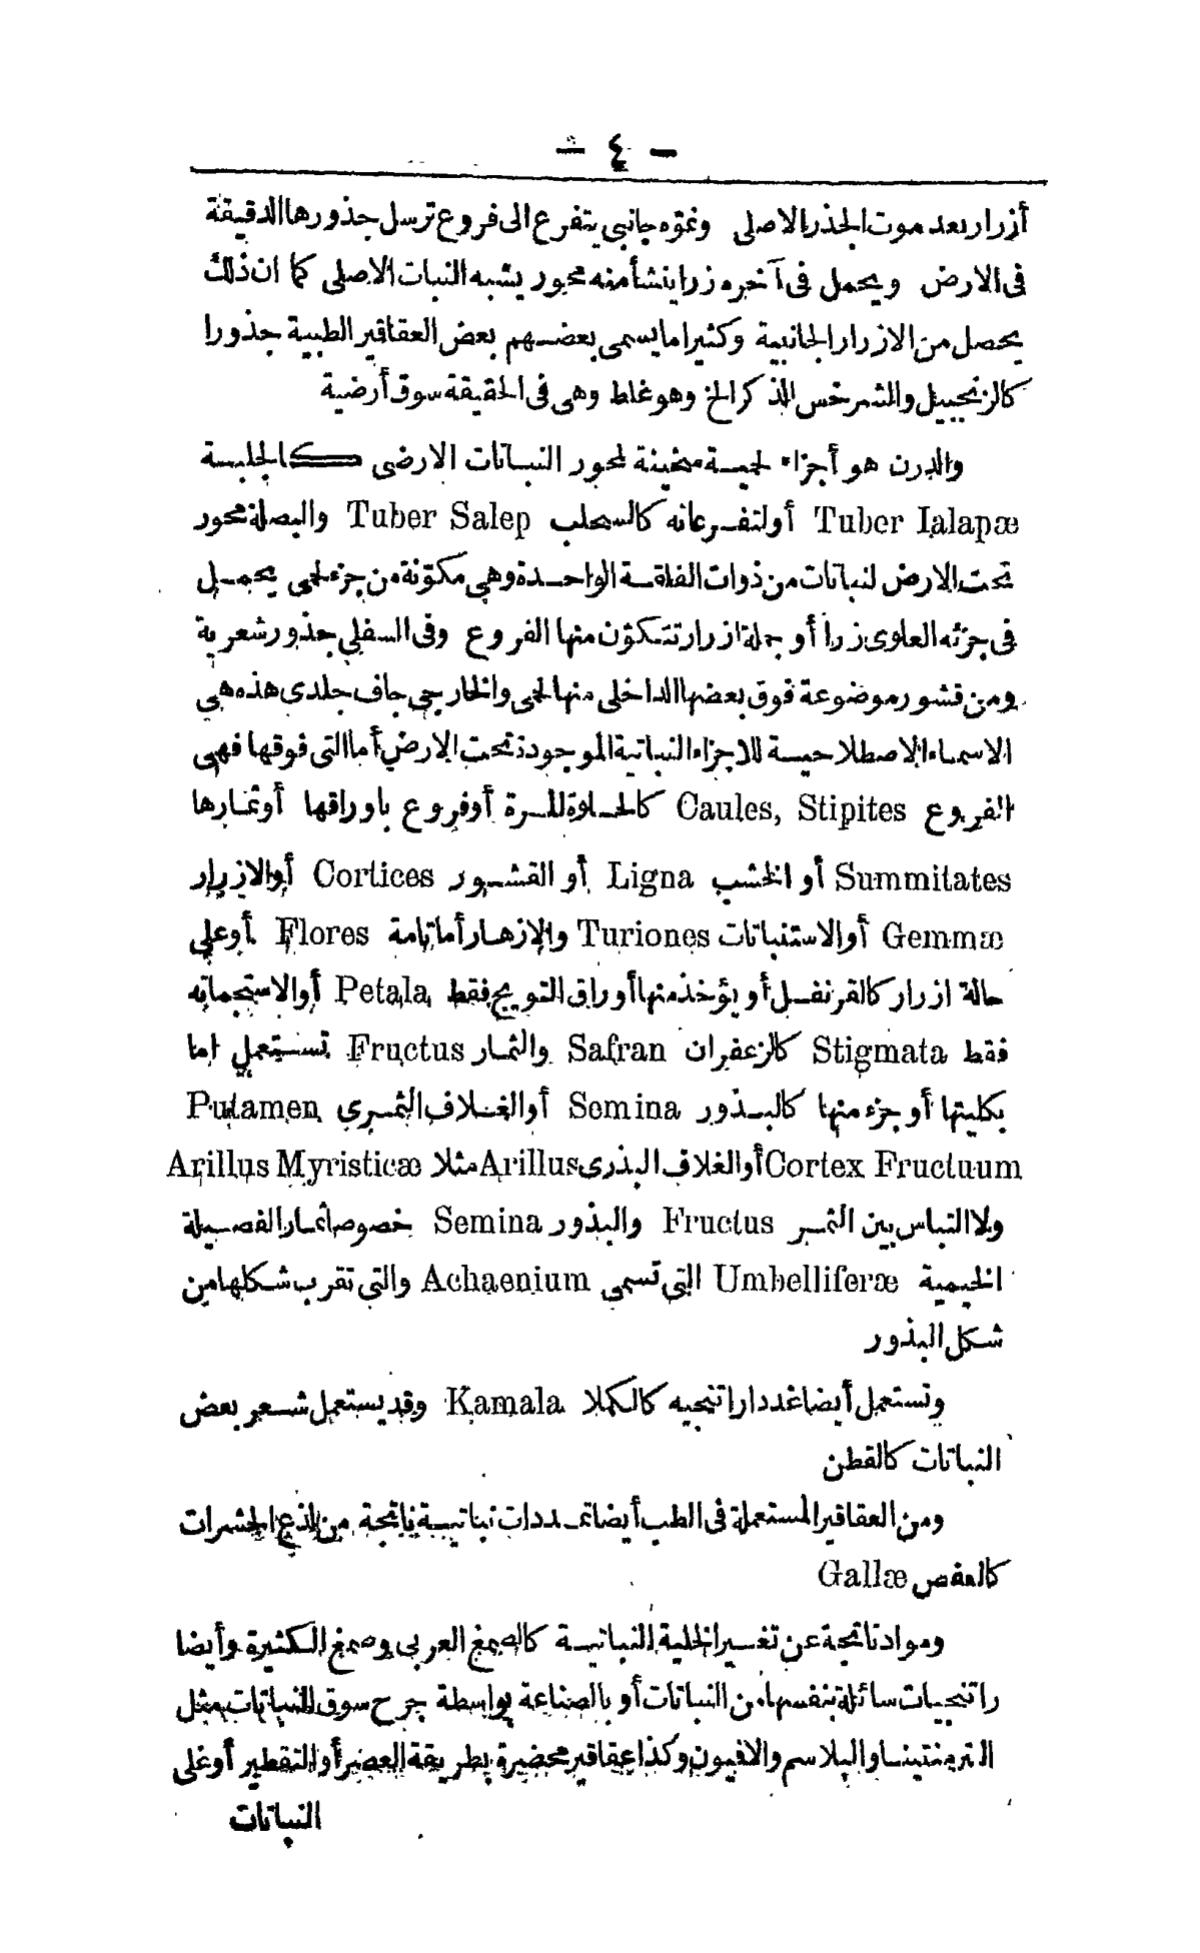 - ٤ -
أزرار بعد موت الجذر الاصلى ونموّه جانبى يتفرع الى فروع ترسل جذورها الدقيقة
فى الارض ويحمل فى آخره زرا ينشأ منه محور يشبه النبات الاصلى كما ان ذلك
يحصل من الازرار الجانبية وكثيرا ما يسمى بعضهم بعض العقاقير الطبية جذورا
كالزنجبيل والسرخس المذكر الخ وهو غلط وهى فى الحقيقة سوق أرضية
والدرن هو أجزاء لحمية ثخينة لمحور النباتات الارضى كالجلبة
Tuber Ialapæ أو لتفرعاته كالسحلب Tuber Salep والبصلة محور
تحت الارض لنباتات من ذوات الفلقة الواحدة وهى مكوّنة من جزء لحمى يحمل
فى جزئه العلوى زرا أو جملة ازرار تتكوّن منها الفروع وفى السفلى جذور شعرية
ومن قشور موضوعة فوق بعضها الداخلى منها لحمى والخارجى جاف جلدى هذه هى
الاسماء الاصطلاحية للاجزاء النباتية الموجودة تحت الارض أما التى فوقها فهى
الفروع Caules, Stipites كالحلاوة المرة أو فروع باوراقها أوثمارها
Summitates أو الخشب Ligna أو القشور Cortices أو الازرار
Gemmæ أو الاستنباتات Turiones والازهار أما تامة Flores أوعلى
حالة ازرار كالقرنفل أو يؤخذ منها أوراق التويج فقط Petala أو الاستجماته
فقط Stigmata كالزعفران Safran والثمار Fructus تستعمل اما
بكليتها أو جزء منها كالبذور Semina أو الغلاف الثمرى Putamen
Cortex Fructuum أو الغلاف البذرى Arillus مثلا Arillus Myristicæ
ولا التباس بين الثمر Fructus والبذور Semina خصوصا ثمار الفصيلة
الخيمية Umbelliferæ التى تسمى Achaenium والتى تقرب شكلها من
شكل البذور
وتستعمل أيضا غدد راتنجيه كالكملا Kamala وقد يستعمل شعر بعض
النباتات كالقطن
ومن العقاقير المستعملة فى الطب أيضا تمددات نباتية ناتجة من لذع الحشرات
كالعفص Gallæ
ومواد ناتجة عن تغسير الخلية النباتية كالصمغ العربى وصمغ الكثيرة وأيضا
راتنجيات سائلة بنفسها من النباتات أو بالصناعة بواسطة جرح سوق النباتات مثل
الترمنتينا والبلاسم والافيون وكذا عقاقير محضرة بطريقة العصر أو التقطير أوغلى
النباتات